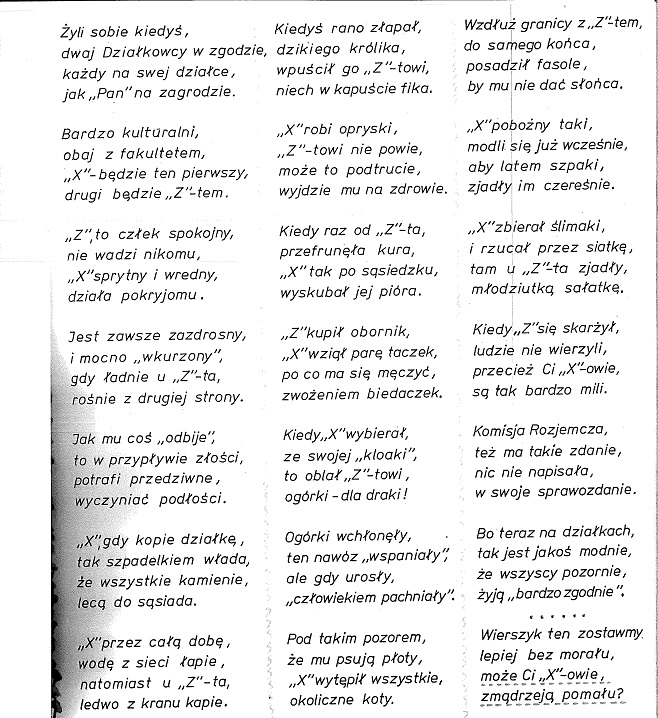 Żyli sobie kiedyś,
dwaj Działkowcy w zgodzie,
każdy na swej działce,
jak „Pan" na zagrodzie.

Bardzo kulturalni,
obaj z fakultetem,
„X"-będzie ten pierwszy,
drugi będzie „Z"-tem.

„Z", to człek spokojny,
nie wadzi nikomu,
„X" sprytny i wredny,
działa pokryjomu.

Jest zawsze zazdrosny,
i mocno „wkurzony",
gdy ładnie u „Z"-ta,
rośnie z drugiej strony.

Jak mu coś „odbije",
to w przypływie złości,
potrafi przedziwne,
wyczyniać podłości.

„X", gdy kopie działkę,
tak szpadelkiem włada,
że wszystkie kamienie,
lecą do sąsiada.

„X" przez całą dobę,
wodę z sieci łapie,
natomiast u „Z"-ta,
ledwo z kranu kapie.

Kiedyś rano złapał,
dzikiego królika,
wpuścił go „Z"-towi,
niech w kapuście fika.

„X" robi opryski,
„Z"-towi nie powie,
może to podtrucie,
wyjdzie mu na zdrowie.

Kiedy raz od „Z"-ta,
przefrunęła kura,
„X" tak po sąsiedzku,
wyskubał jej pióra.

„Z" kupił obornik,
„X" wziął parę taczek,
po co ma się męczyć,
zwożeniem biedaczek.

Kiedy „X" wybierał,
ze swojej „kloaki",
to oblał „Z"-towi,
ogórki - dla draki!

Ogórki wchłonęły,
ten nawóz „wspaniały",
ale gdy urosły,
„człowiekiem pachniały".

Pod takim pozorem,
że mu psują płoty,
„X" wytępił wszystkie,
okoliczne koty.

Wzdłuż granicy z „Z"-tem,
do samego końca,
posadził fasole,
by mu nie dać słońca.

„X" pobożny taki,
modli się już wcześnie,
aby latem szpaki,
zjadły im czereśnie.

„X" zbierał ślimaki,
i rzucał przez siatkę,
tam u „Z"-ta zjadły,
młodziutką sałatkę.

Kiedy „Z" się skarżył,
ludzie nie wierzyli,
przecież Ci „X"-owie,
są tak bardzo mili.

Komisja Rozjemcza,
też ma takie zdanie,
nic nie napisała,
w swoje sprawozdanie.

Bo teraz na działkach,
tak jest jakoś modnie,
że wszyscy pozornie,
żyją „bardzo zgodnie".
......
Wierszyk ten zostawmy
lepiej bez morału,
może Ci „X"-owie,
zmądrzeją pomału?